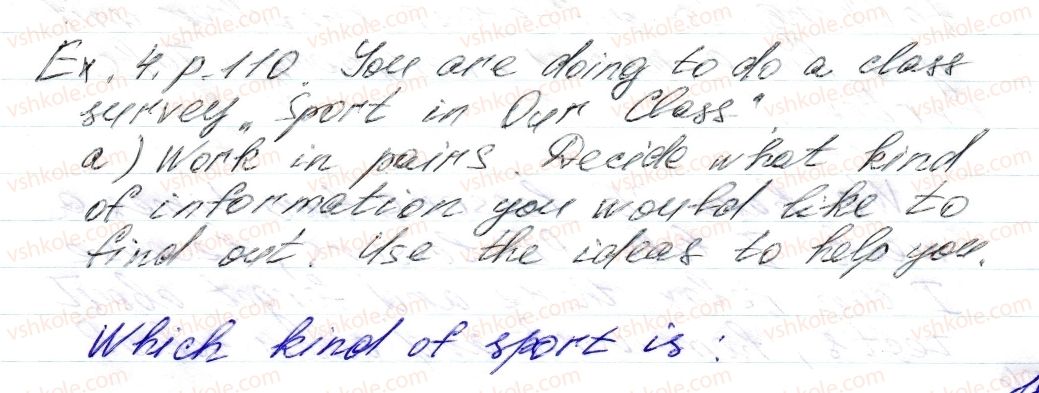 Ex. 4. p. 110. You are doing to do a class
survey „Sport in Our Class".
a) Work in pairs. Decide what kind
of information you would like to
find out. Use the ideas to help you.
Which kind of sport is: